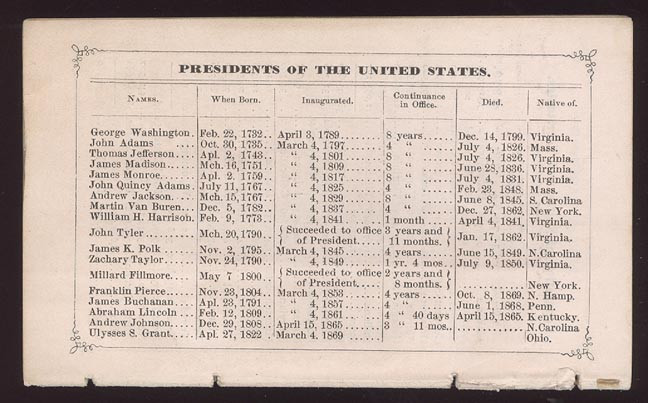 PRESIDENTS OF THE UNITED STATES.
NAMES. When Born. Inaugurated. Continuance in Office. Died. Native of.
George Washington. Feb. 22, 1732.. April 3, 1789....... 8 years...... Dec. 14, 1799. Virginia.
John Adams .... Oct. 30, 1735.. March 4, 1797...... 4 “ ...... July 4, 1826. Mass.
Thomas Jefferson.... Apl. 2, 1743.. “ 4, 1801 ...... 8 “ ...... July 4, 1826. Virginia.
James Madison...... Mch. 16, 1751.. “ 4, 1809 ...... 8 “ ...... June 28, 1836. Virginia.
James Monroe...... Apl. 2. 1759.. “ 4, 1817 ...... 8 “ ...... July 4, 1831. Virginia.
John Quincy Adams. July 11, 1767.. “ 4, 1825 ...... 4 “ ...... Feb. 23, 1848. Mass.
Andrew Jackson.... Mch. 15, 1767.. “ 4, 1829 ...... 8 “ ...... June 8, 1845. S. Carolina
Martin Van Buren.. Dec. 5, 1782.. “ 4, 1837 ...... 4 “ ...... Dec. 27, 1862. New York.
William H. Harrison. Feb. 9, 1773.. “ 4, 1841...... 1 month .... April 4, 1841. Virginia.
John Tyler ......... Mch. 20, 1790.. { Succeeded to office of President..... } 3 years and 11 months. } Jan. 17, 1862. Virginia.
James K. Polk ...... Nov. 2, 1795.. March 4, 1845...... 4 years...... June 15, 1849. N. Carolina
Zachary Taylor..... Nov. 24, 1790.. “ 4, 1849...... 1 yr. 4 mos.. July 9, 1850. Virginia.
Millard Fillmore.... May 7 1800... { Succeeded to office of President..... } 2 years and 8 months. } ............ New York.
Franklin Pierce..... Nov. 23, 1804.. March 4, 1853...... 4 years...... Oct. 8, 1869. N. Hamp.
James Buchanan ... Apl. 23, 1791.. “ 4, 1857 ...... 4 “ ...... June 1, 1868. Penn.
Abraham Lincoln ... Feb. 12, 1809.. “ 4, 1861 ...... 4 “ 40 days April 15, 1865. Kentucky.
Andrew Johnson.... Dec. 29, 1808.. April 15, 1865...... 3 “ 11 mos.. ............ N. Carolina
Ulysses S. Grant.... Apl. 27, 1822 . March 4, 1869 ...... Ohio.